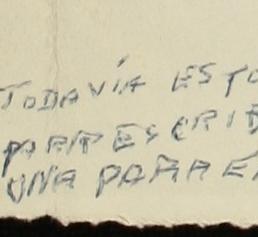 TODAVÍA ESTO
PARA ESCRIB
UNA PARA E